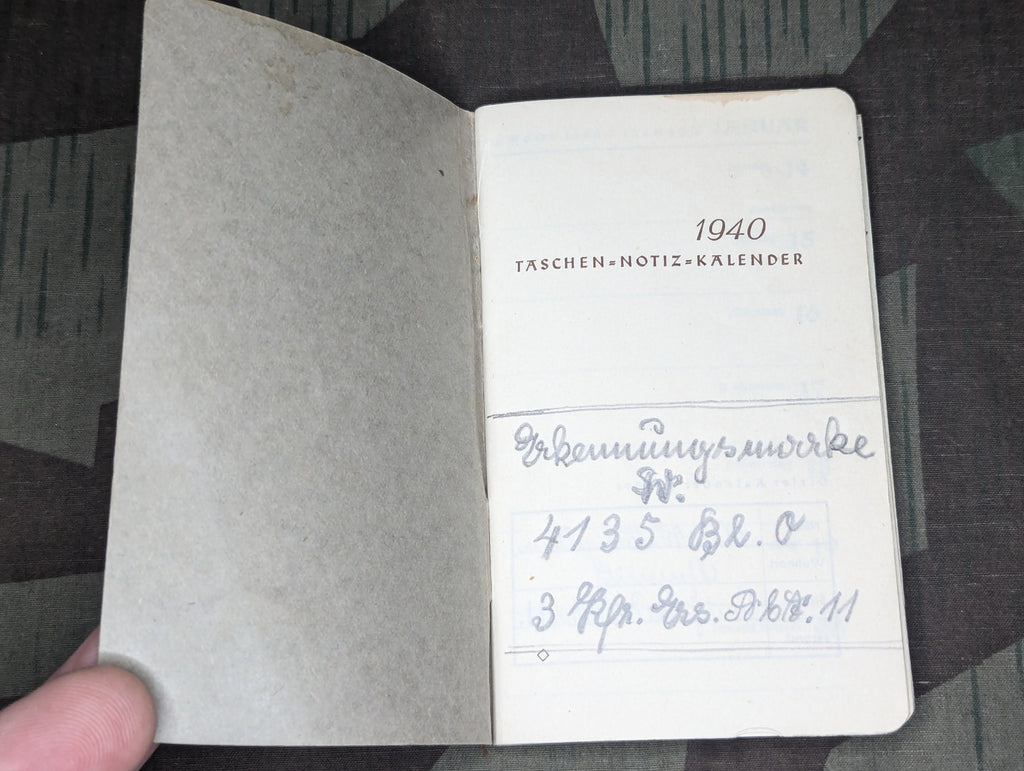 1940
TASCHEN=NOTIZ=KALENDER
Erkennungsmarke
Nr.
4135 Bl. O
3 Kfr. Ers. Abt. 11